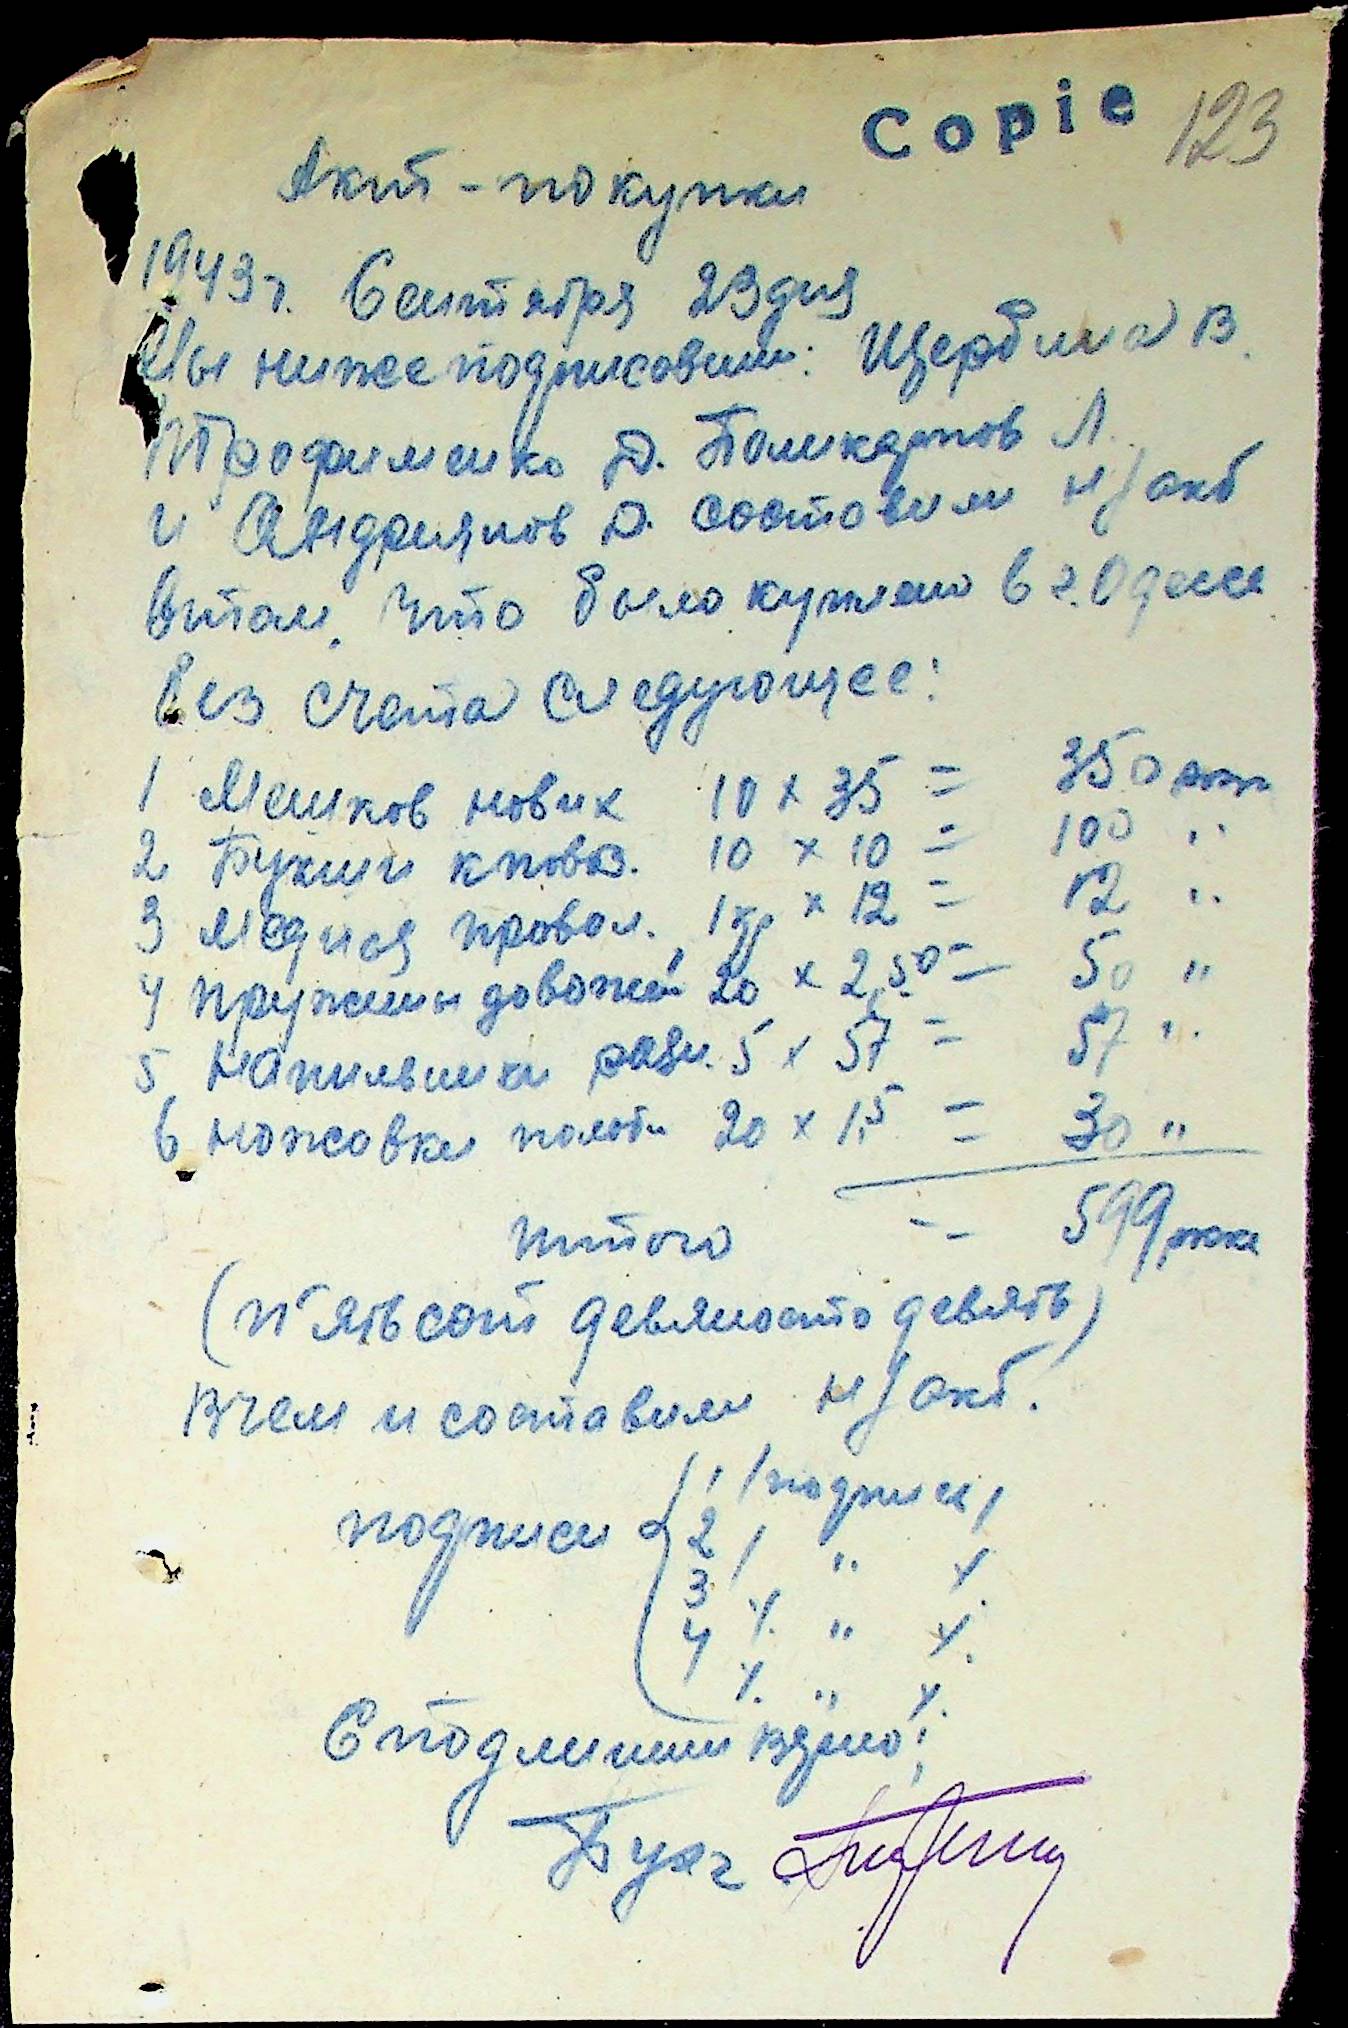 Copie 123
Акт - покупки
1943 г. Сентября 23 дня
Мы нижеподписавши: Щербина В.
Трофименко Д. Поликарпов Л.
и Андриянов Д. составили н/акт
втом, что было куплено в г. Одесса
без счета следующее:
1 Мешков новых 10 х 35 = 350
2 Букши к повоз. 10 х 10 = 100 "
3 Медная провол. 1 кгр х 12 = 12 "
4 Пружины 20 х 2,50 = 50 "
5 Напильники разн. 5 х 57 = 57 "
6 Ножовки полотн 20 х 1,5 = 30 "
Итого -- 599
(П'ятьсот девяносто девять)
в чем и составили н/акт.
подписи 1 /подписи/
2 / " /
3 /. " /.
4 /. " /.
С подлинным вярно:
Бухг.